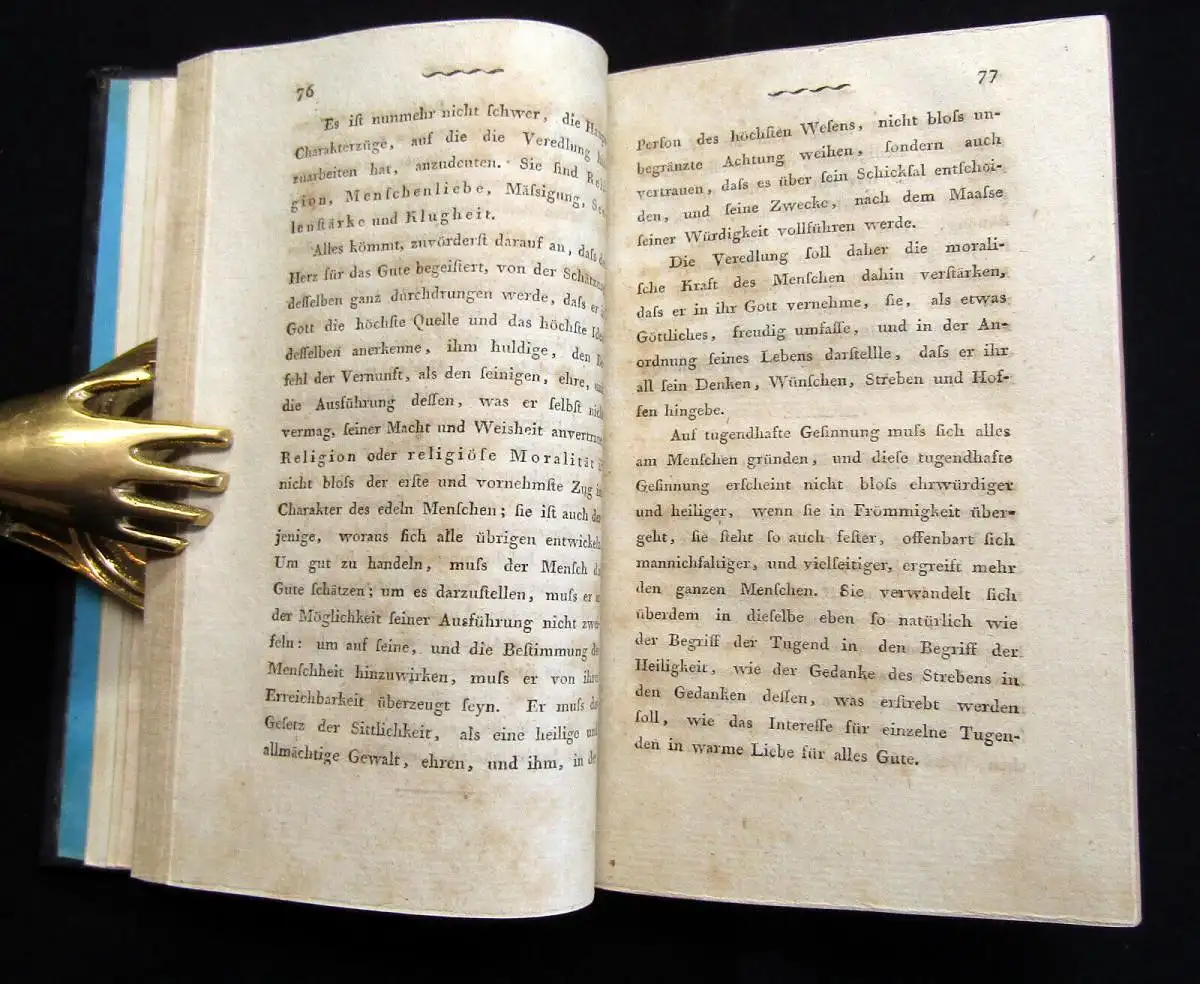 76
Es iſt nunmehr nicht ſchwer, die
Charakterzüge, auf die die Veredlung
zuarbeiten hat, anzudeuten. Sie ſind Reli
gion, Menſchenliebe, Mäſsigung, See
lenſtärke und Klugheit.
Alles kömmt, zuvörderſt darauf an, daſs
Herz für das Gute begeiſtert, von der
deſſelben ganz durchdrungen werde, daſs er
Gott die höchſte Quelle und das höchſte
deſſelben anerkenne, ihm huldige, den
fehl der Vernunft, als den ſeinigen, ehre,
die Ausführung deſſen, was er ſelbſt
vermag, ſeiner Macht und Weisheit
Religion oder religiöſe Moralität
nicht bloſs der erſte und vornehmſte Zug
Charakter des edeln Menſchen; ſie iſt auch
jenige, woraus ſich alle übrigen
Um gut zu handeln, muſs der Menſch
Gute ſchätzen; um es darzuſtellen, muſs er
der Möglichkeit ſeiner Ausführung nicht
feln: um auf ſeine, und die Beſtimmung
Menſchheit hinzuwirken, muſs er von
Erreichbarkeit überzeugt ſeyn. Er muſs
Geſetz der Sittlichkeit, als eine heilige
allmächtige Gewalt, ehren, und ihm, in
77
Perſon des höchſten Weſens, nicht bloſs un-
begränzte Achtung weihen, ſondern auch
vertrauen, daſs es über ſein Schickſal entſchei-
den, und ſeine Zwecke, nach dem Maaſse
ſeiner Würdigkeit vollführen werde.
Die Veredlung ſoll daher die morali-
ſche Kraft des Menſchen dahin verſtärken,
daſs er in ihr Gott vernehme, ſie, als etwas
Göttliches, freudig umfaſſe, und in der An-
ordnung ſeines Lebens darſtellle, daſs er ihr
all ſein Denken, Wünſchen, Streben und Hof-
fen hingebe.
Auf tugendhafte Geſinnung muſs ſich alles
am Menſchen gründen, und dieſe tugendhafte
Geſinnung erſcheint nicht bloſs ehrwürdiger
und heiliger, wenn ſie in Frömmigkeit über-
geht, ſie ſteht ſo auch feſter, offenbart ſich
mannichfaltiger, und vielſeitiger, ergreift mehr
den ganzen Menſchen. Sie verwandelt ſich
überdem in dieſelbe eben ſo natürlich wie
der Begriff der Tugend in den Begriff der
Heiligkeit, wie der Gedanke des Strebens in
den Gedanken deſſen, was erſtrebt werden
ſoll, wie das Intereſſe für einzelne Tugen-
den in warme Liebe für alles Gute.